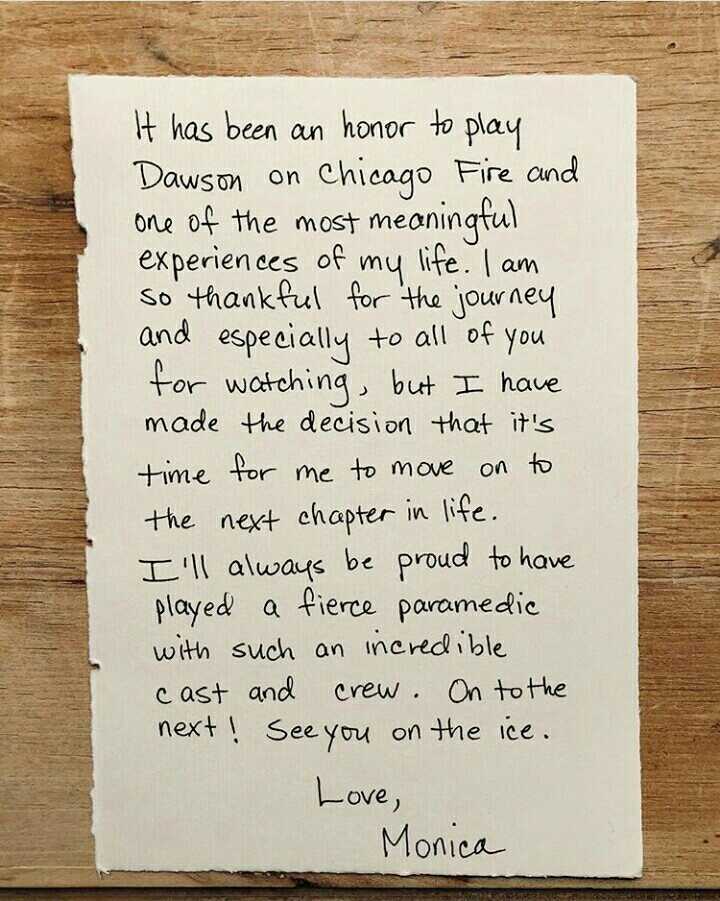 It has been an honor to play
Dawson on Chicago Fire and
one of the most meaningful
experiences of my life. I am
so thankful for the journey
and especially to all of you
for watching, but I have
made the decision that it's
time for me to move on to
the next chapter in life.
I'll always be proud to have
played a fierce paramedic
with such an incredible
cast and crew. On to the
next! See you on the ice.
Love,
Monica